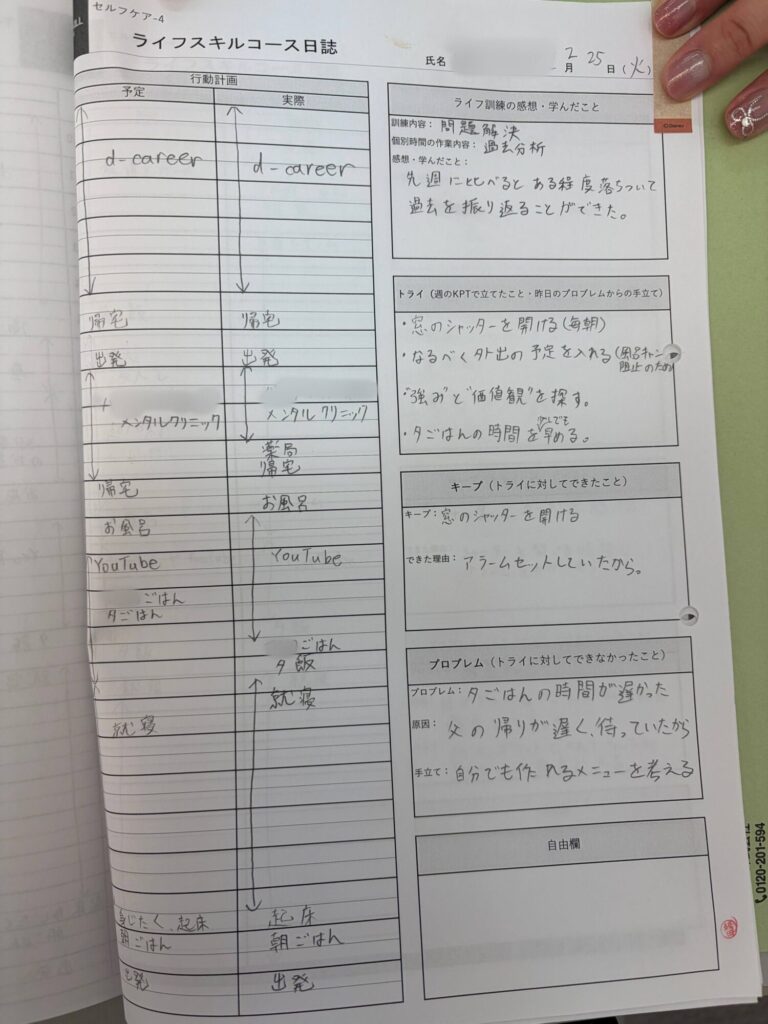 セルフケア-4
ライフスキルコース日誌
氏名
2月 25日 (火)
行動計画
予定
実際
d-career
d-career
帰宅
帰宅
出発
出発
メンタルクリニック
メンタルクリニック
薬局
帰宅
帰宅
お風呂
お風呂
YouTube
YouTube
ごはん
夕ごはん
ごはん
夕飯
就寝
就寝
身じたく、起床
起床
朝ごはん
朝ごはん
出発
出発
ライフ訓練の感想・学んだこと
訓練内容: 問題解決
個別時間の作業内容: 過去分析
感想・学んだこと:
先週に比べるとある程度落ちついて
過去を振り返ることができた。
トライ(週のKPTで立てたこと・昨日のプロブレムからの手立て)
・窓のシャッターを開ける(毎朝)
・なるべく外出の予定を入れる(風呂キャン
阻止のため
・"強み"と"価値観"を探す。
少しでも
・夕ごはんの時間を早める。
キープ(トライに対してできたこと)
キープ: 窓のシャッターを開ける
できた理由: アラームセットしていたから。
プロブレム(トライに対してできなかったこと)
プロブレム: 夕ごはんの時間が遅かった
原因: 父の帰りが遅く、待っていたから
手立て: 自分でも作れるメニューを考える
自由欄
©Disney
0120-201-594